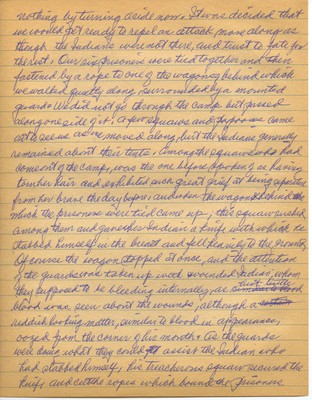 nothing by turning aside now. Sterns decided that
we would get ready to repel an attack, move along as
though the Indians were not there, and trust to fate for
the rest. Our six prisoners were tied together and then
fastened by a rope to one of the wagons, behind which
we walked quietly along, surrounded by a mounted
guard. We did not go through the camp but passed
along one side of it. A few squaws and papoose came
out to see us as we moved along, but the Indians generally
remained about their tents. Among the squaws who had
come out of the camp, was the one before spoken of as having
torn her hair and exhibited such great grief at being separated
from her brave the day before, and when the wagon behind
which the prisoners were tied came up, this squaw rushed
among them and gave her Indian a knife with which he
stabbed himself in the breast and fell heavily to the ground.
Of course the wagon stopped at once, and the attention
of the guards was taken up with wounded Indian, whom
they supposed to be bleeding internally, as but little
blood was seen about the wounds, although a
reddish looking matter, similar to blood in appearance,
oozed from the corner of his mouth. As the guards
were doing what they could to assist the Indian who
had stabbed himself, his treacherous squaw secured the
knife and cut the ropes which bound the prisoners